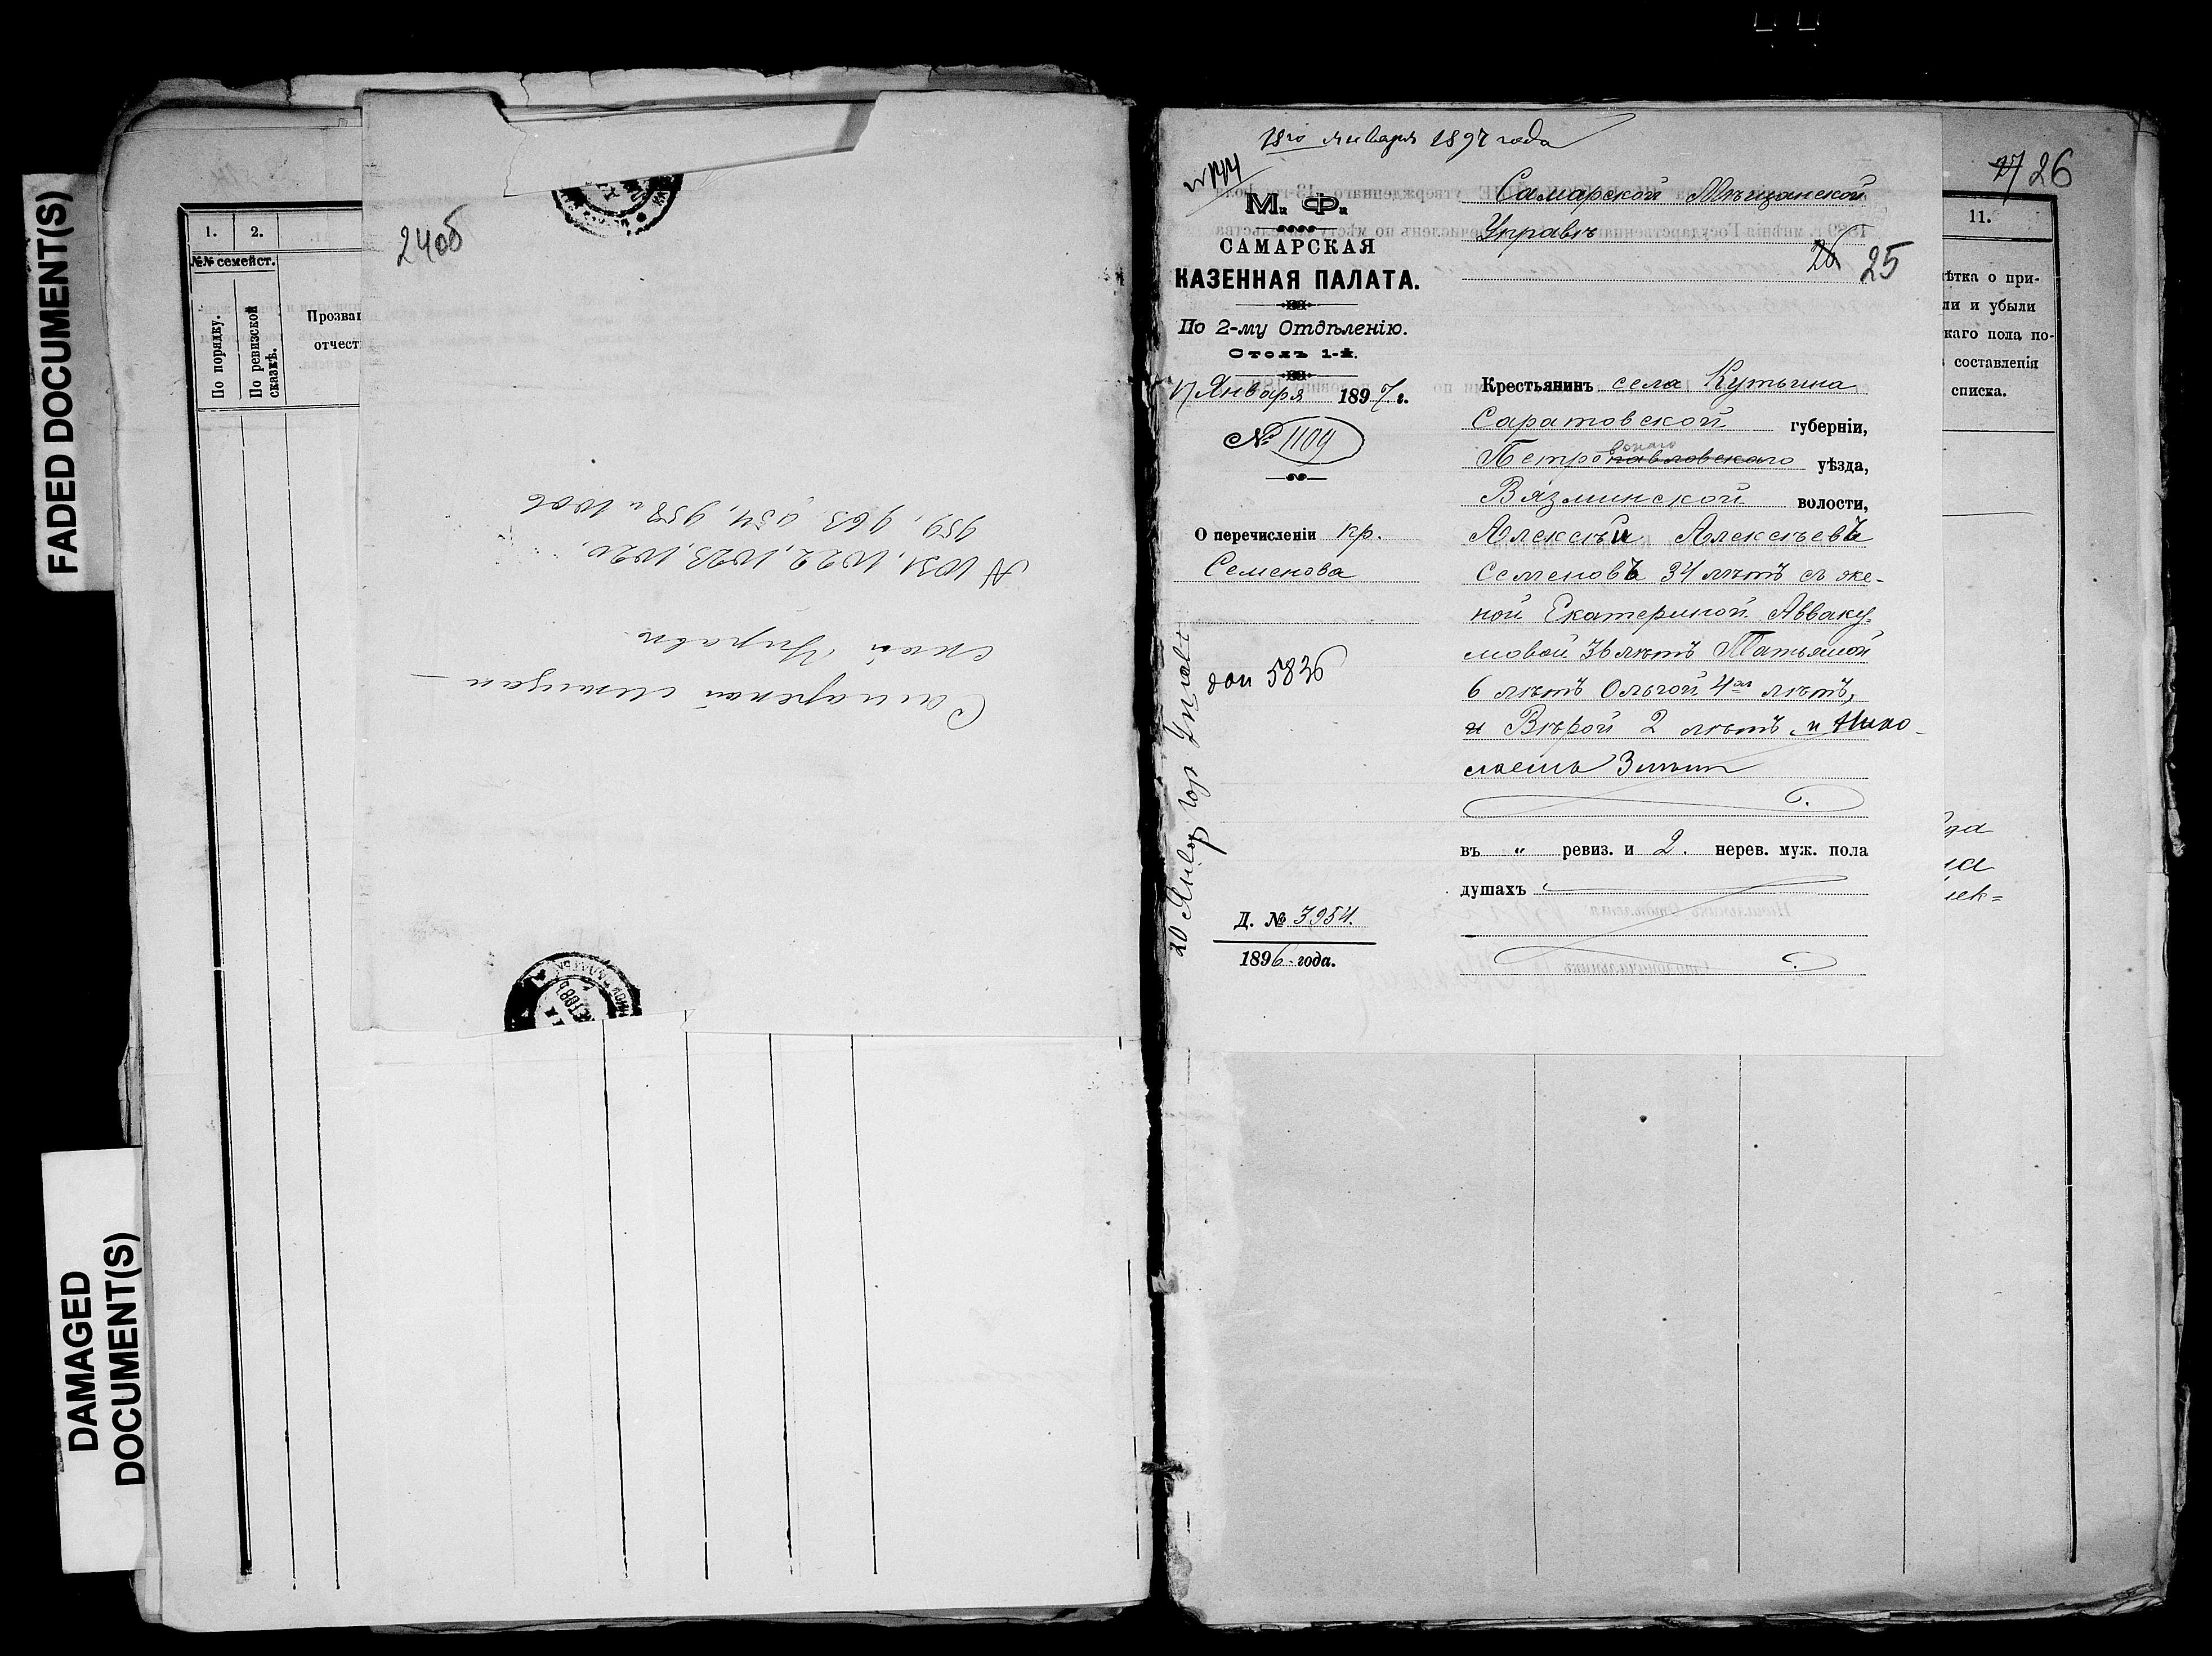 FADED DOCUMENT(S)
DAMAGED
DOCUMENT(S)
1. 2.
№№ семейст.
По порядку.
По ревизской
сказкѣ.
Прозва
отчест
24об
Самарской мѣщан-
ской Управѣ
№ 1031, 1022, 1023, 1020,
959, 963, 954, 958 и 1006
18го января 1897 года
М. Ф.
САМАРСКАЯ
КАЗЕННАЯ ПАЛАТА.
По 2-му Отдѣленію.
Столъ 1-й.
17 Января 1897 г.
№ 1109
О перечисленіи кр.
Семенова
5836
Д. № 3954.
1896 года.
Самарской Мѣщанской
Управѣ
26 25
Крестьянинъ села Кутьина
Саратовской губерніи,
Петропавловскаго уѣзда,
Вязминской волости,
Алексѣй Алексѣевъ
Семеновъ 34 лѣтъ съ же-
ной Екатериной Авваку-
мовой 36 лѣтъ Татьяной
6 лѣтъ Ольгой 4хъ лѣтъ,
и Вѣрой 2 лѣтъ и Нико-
лаемъ 3 лѣтъ
въ „ ревиз. и 2. нерев. муж. пола
душахъ
27 26
11.
ѣтка о при-
ли и убыли
каго пола по-
составленія
списка.
да
на
лек=